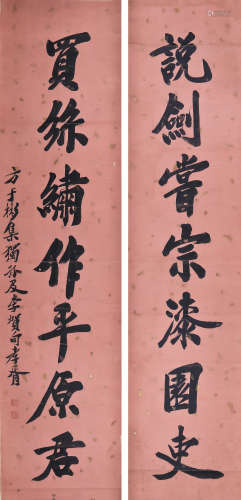 說劍嘗宗漆園吏
買絲繡作平原君
集獨孤及李賀句孝胥